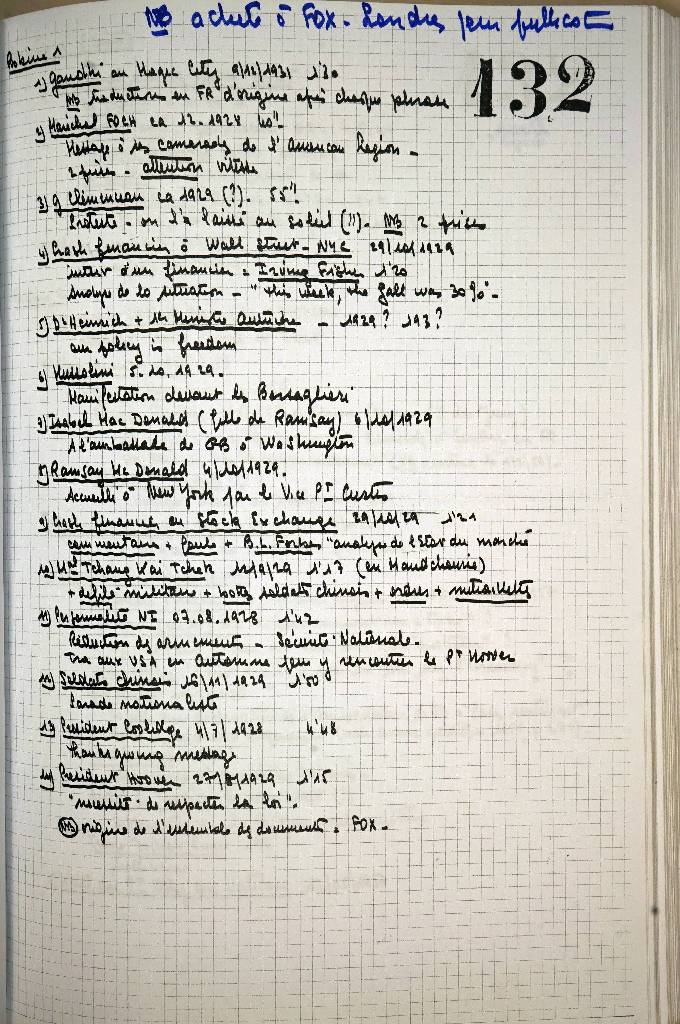 NB acheté à FOX. Londres pour publicat
132
Bobine 1
1) Gandhi au Magic City 9/12/1931 1'30
NB traduction en FR d'origine après chaque phrase
2) Maréchal FOCH ca 12.1928 40"
Message à ses camarades de l'American Legion -
2 prises - attention vitesse
3) G Clémenceau ca 1929 (?). 55"
Proteste - on l'a laissé au soleil (!!). NB 2 prises
4) Crash financier à Wall Street - NYC 29/10/1929
interv d'un financier = Irving Fisher 1'20
Analyse de la situation - "this week, the fall was 30%".
5) Dr Heinrich + 1er Ministre Autriche - 1929? 193?
our policy is freedom
6) Mussolini 5.10.1929.
Manifestation devant les Bersaglieri
7) Isabel Mac Donald (fille de Ramsay) 6/10/1929
A l'ambassade de GB à Washington
8) Ramsay Mc Donald 4/10/1929.
Accueilli à New York par le Vice PT Curtis
9) Crash financier au Stock Exchange 29/10/29 1'21
commentaire + foule + B.L. Forbes "analyse de l'état du marché
10) Mal Tchang Kai Tchek 12/9/29 1'17 (en Mandchourie)
+ défilé militaire + bottes soldats chinois + ordres + mitraillettes
11) Personnalité NI 07.08.1928 1'42
Réduction des armements - Sécurité Nationale.
Ira aux USA en Automne pour y rencontrer le PT Hoover
12) Soldats chinois 16/11/1929 1'50
Parade nationaliste
13) President Coolidge 4/7/1928 4'48
Thanksgiving message
14) President Hoover 27/8/1929 1'15
"nécessité de respecter la loi".
NB origine de l'ensemble des documents = FOX -